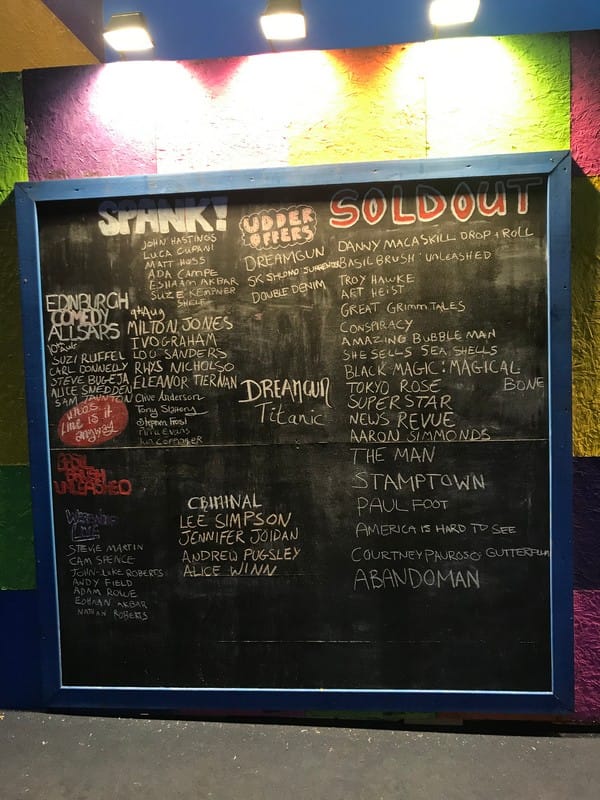 SPANK!
JOHN HASTINGS
LUCA CUPANI
MATT HOSS
ADA CAMPE
ESHAAN AKBAR
SUZE KEMPNER
EDINBURGH
COMEDY
ALLSARS
10th AUG
SUZI RUFFEL
CARL DONNELLY
STEVE BUGEJA
ALICE SNEDDEN
SAM TAUNTON
9th Aug
MILTON JONES
IVO GRAHAM
LOU SANDERS
RHYS NICHOLSO
ELEANOR TIERNAN
WHOS
LINE IS IT
anyway
Clive Anderson
Tony Slattery
Stephen Frost
BASIL
BRUSH
UNLEASHED
LIVE
STEVIE MARTIN
CAM SPENCE
JOHN-LUKE ROBERTS
ANDY FIELD
ADAM ROWE
ESHAAN AKBAR
NATHAN ROBERTS
UDDER
OFFERS
DREAMGUN
DOUBLE DENIM
DREAMGUN
Titanic
CRIMINAL
LEE SIMPSON
JENNIFER JOIDAN
ANDREW PUGSLEY
ALICE WINN
SOLDOUT
DANNY MACASKILL DROP + ROLL
BASIL BRUSH : UNLEASHED
TROY HAWKE
ART HEIST
GREAT GRIMM TALES
CONSPIRACY
AMAZING BUBBLE MAN
SHE SELLS SEA SHELLS
BLACK MAGIC : MAGICAL
BONE
TOKYO ROSE
SUPERSTAR
NEWS REVUE
AARON SIMMONDS
THE MAN
STAMPTOWN
PAUL FOOT
AMERICA IS HARD TO SEE
COURTNEY PAUROSO: GUTTERPLUM
ABANDOMAN